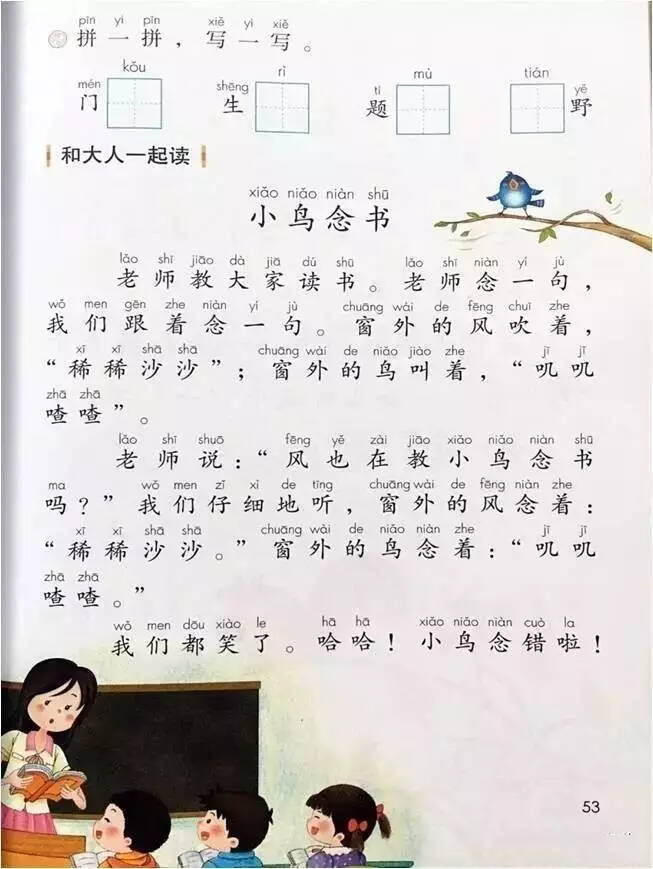 pīn yi pīn xiě yi xiě
拼一拼，写一写。
kǒu rì mù tián
mén shēng tí yě
门 生 题 野
和大人一起读
xiǎo niǎo niàn shū
小鸟念书
lǎo shī jiāo dà jiā dú shū lǎo shī niàn yí jù
老师教大家读书。老师念一句，
wǒ men gēn zhe niàn yí jù chuāng wài de fēng chuī zhe
我们跟着念一句。窗外的风吹着，
xī xī shā shā chuāng wài de niǎo jiào zhe jī jī
“稀稀沙沙”；窗外的鸟叫着，“叽叽
zhā zhā
喳喳”。
lǎo shī shuō fēng yě zài jiāo xiǎo niǎo niàn shū
老师说：“风也在教小鸟念书
ma wǒ men zǐ xì de tīng chuāng wài de fēng niàn zhe
吗？”我们仔细地听，窗外的风念着：
xī xī shā shā chuāng wài de niǎo niàn zhe jī jī
“稀稀沙沙。”窗外的鸟念着：“叽叽
zhā zhā
喳喳。”
wǒ men dōu xiào le hā hā xiǎo niǎo niàn cuò la
我们都笑了。哈哈！小鸟念错啦！
53